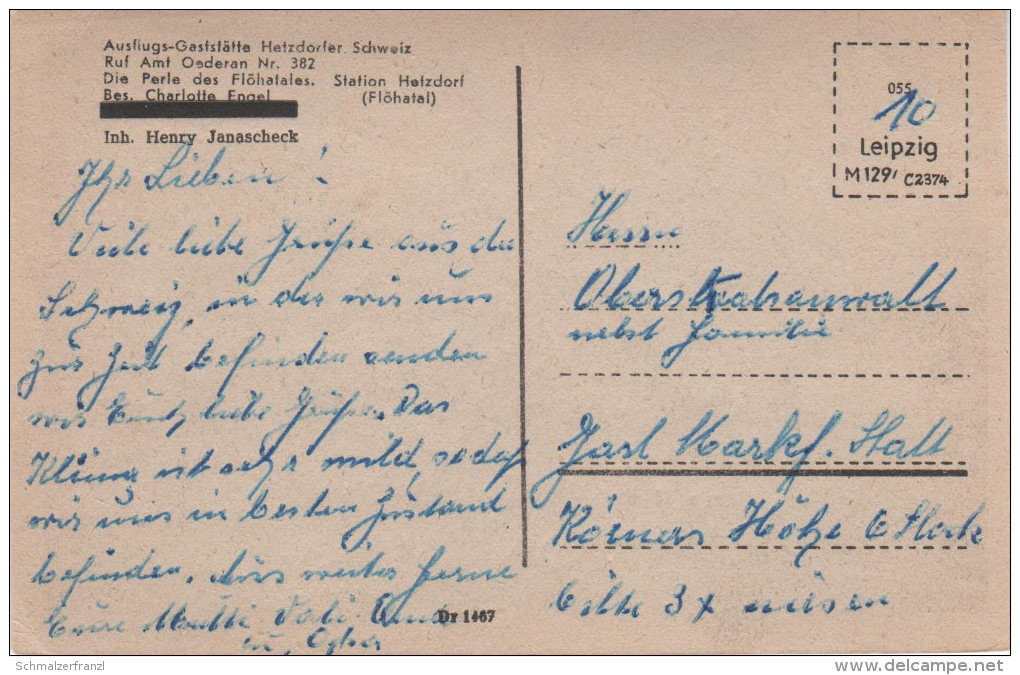 Ausflugs-Gaststätte Hetzdorfer Schweiz
Ruf Amt Oederan Nr. 382
Die Perle des Flöhatales. Station Hetzdorf
Bes. Charlotte Engel (Flöhatal)
Inh. Henry Janascheck
Ihr Lieben!
Viele liebe Grüße aus der
Schweiz, in der wir uns
zur Zeit befinden senden
wir Euch liebe Grüße. Das
Klima ist sehr mild, sodaß
wir uns in besten Zustand
befinden. Aus weiter Ferne
Eure Mutti Vati Oma
u.
Dr 1467
055
10
Leipzig
M129/ C2374
Herrn
Oberstaatsanwalt
nebst Familie
Karl Markf. Statt
Körners Höhe 6 Stock
bitte 3x niesen
Schmalzerfranzl
delcampe.net